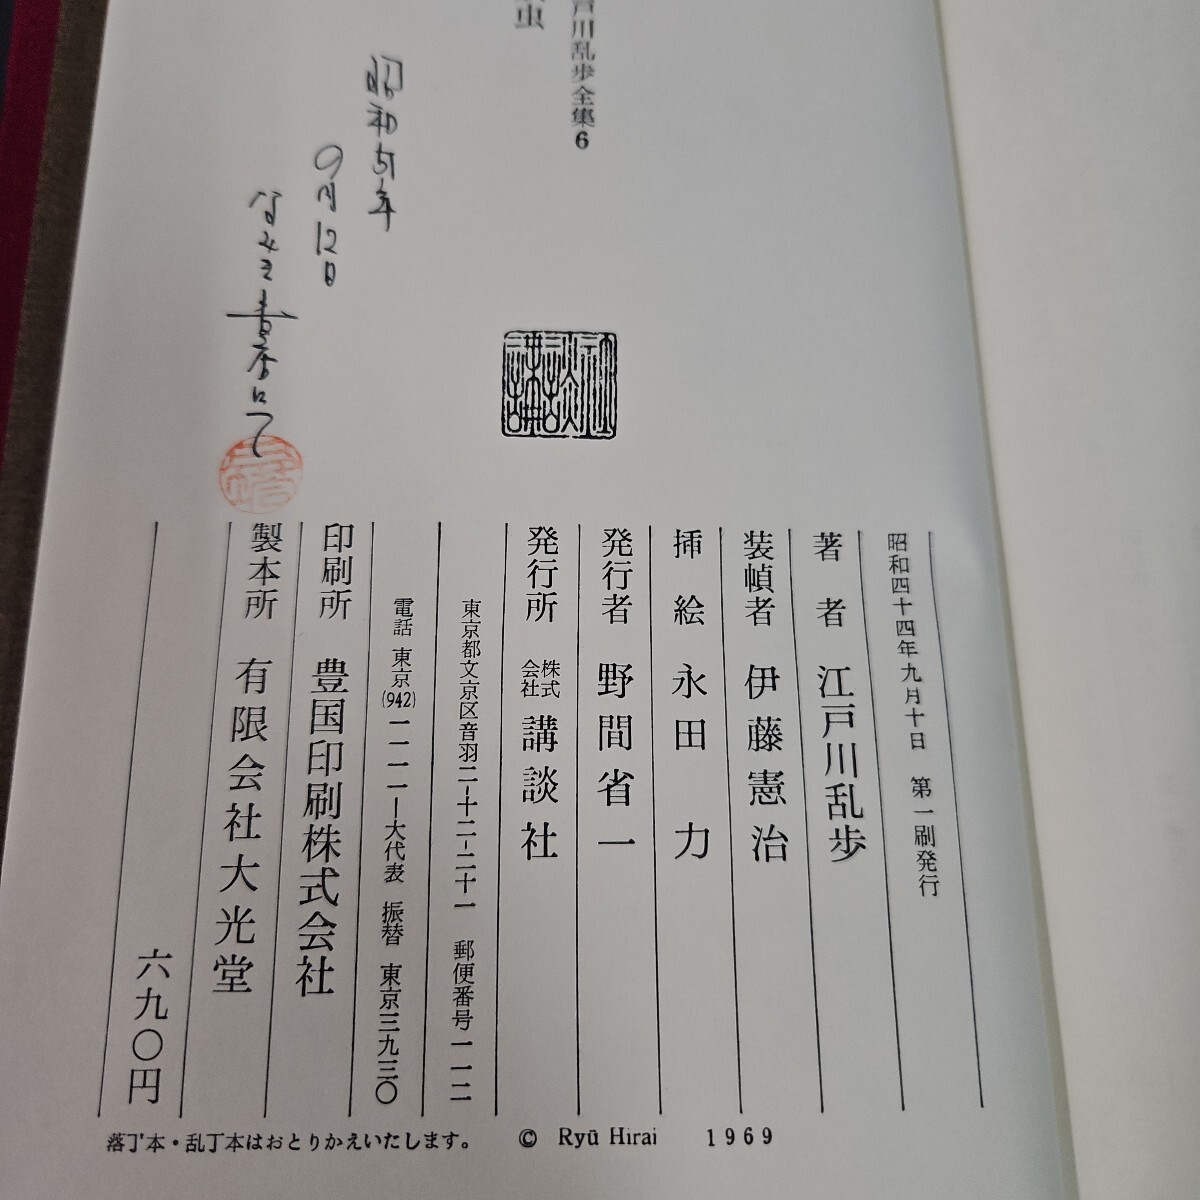 戸川乱歩全集6
虫
昭和51年
9月12日
書店にて
講談社
昭和四十四年九月十日 第一刷発行
著者 江戸川乱歩
装幀者 伊藤憲治
挿絵 永田力
発行者 野間省一
発行所 株式会社 講談社
東京都文京区音羽二-十二-二十一 郵便番号一一二
電話 東京(942)一一一一-大代表 振替 東京三九三〇
印刷所 豊国印刷株式会社
製本所 有限会社大光堂
六九〇円
落丁本・乱丁本はおとりかえいたします。 © Ryū Hirai 1969